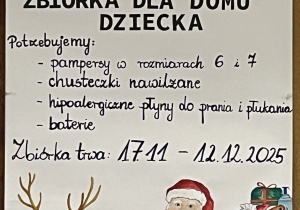 ZBIÓRKA DLA DOMU
DZIECKA
Potrzebujemy:
- pampersy w rozmiarach 6 i 7
- chusteczki nawilżane
- hipoalergiczne płyny do prania i płukania
- baterie
Zbiórka trwa: 17.11 - 12.12.2025